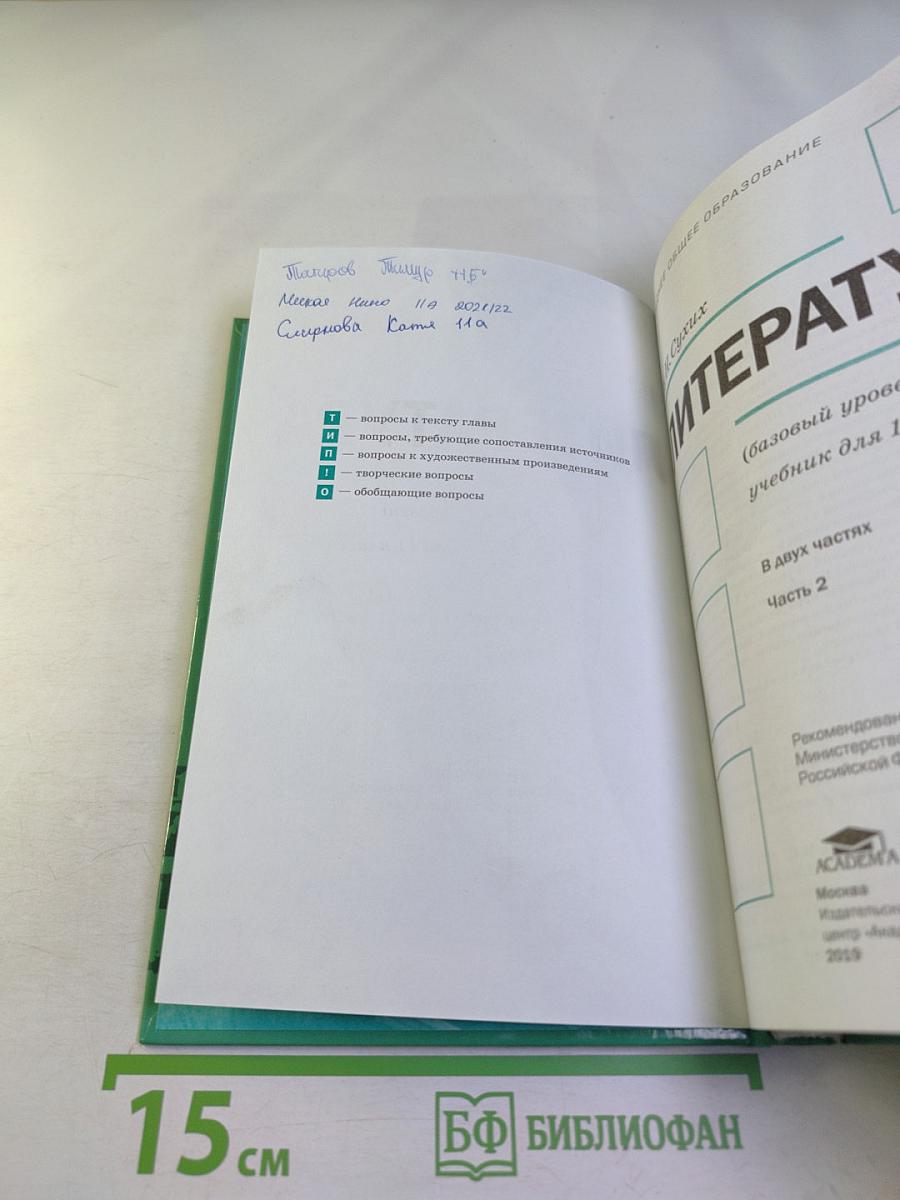 Тимур "11Б"
нино 11А 2021/22
Смирнова Катя 11а
Т — вопросы к тексту главы
И — вопросы, требующие сопоставления источников
П — вопросы к художественным произведениям
! — творческие вопросы
О — обобщающие вопросы
ОБЩЕЕ ОБРАЗОВАНИЕ
Сухих
ЛИТЕРАТУ
(базовый уров
учебник для 1
В двух частях
Часть 2
Рекомендован
Министерств
Российской Ф
ACADEMA
Москва
Издательск
центр «Ака
2019
15 см
БФ БИБЛИОФАН